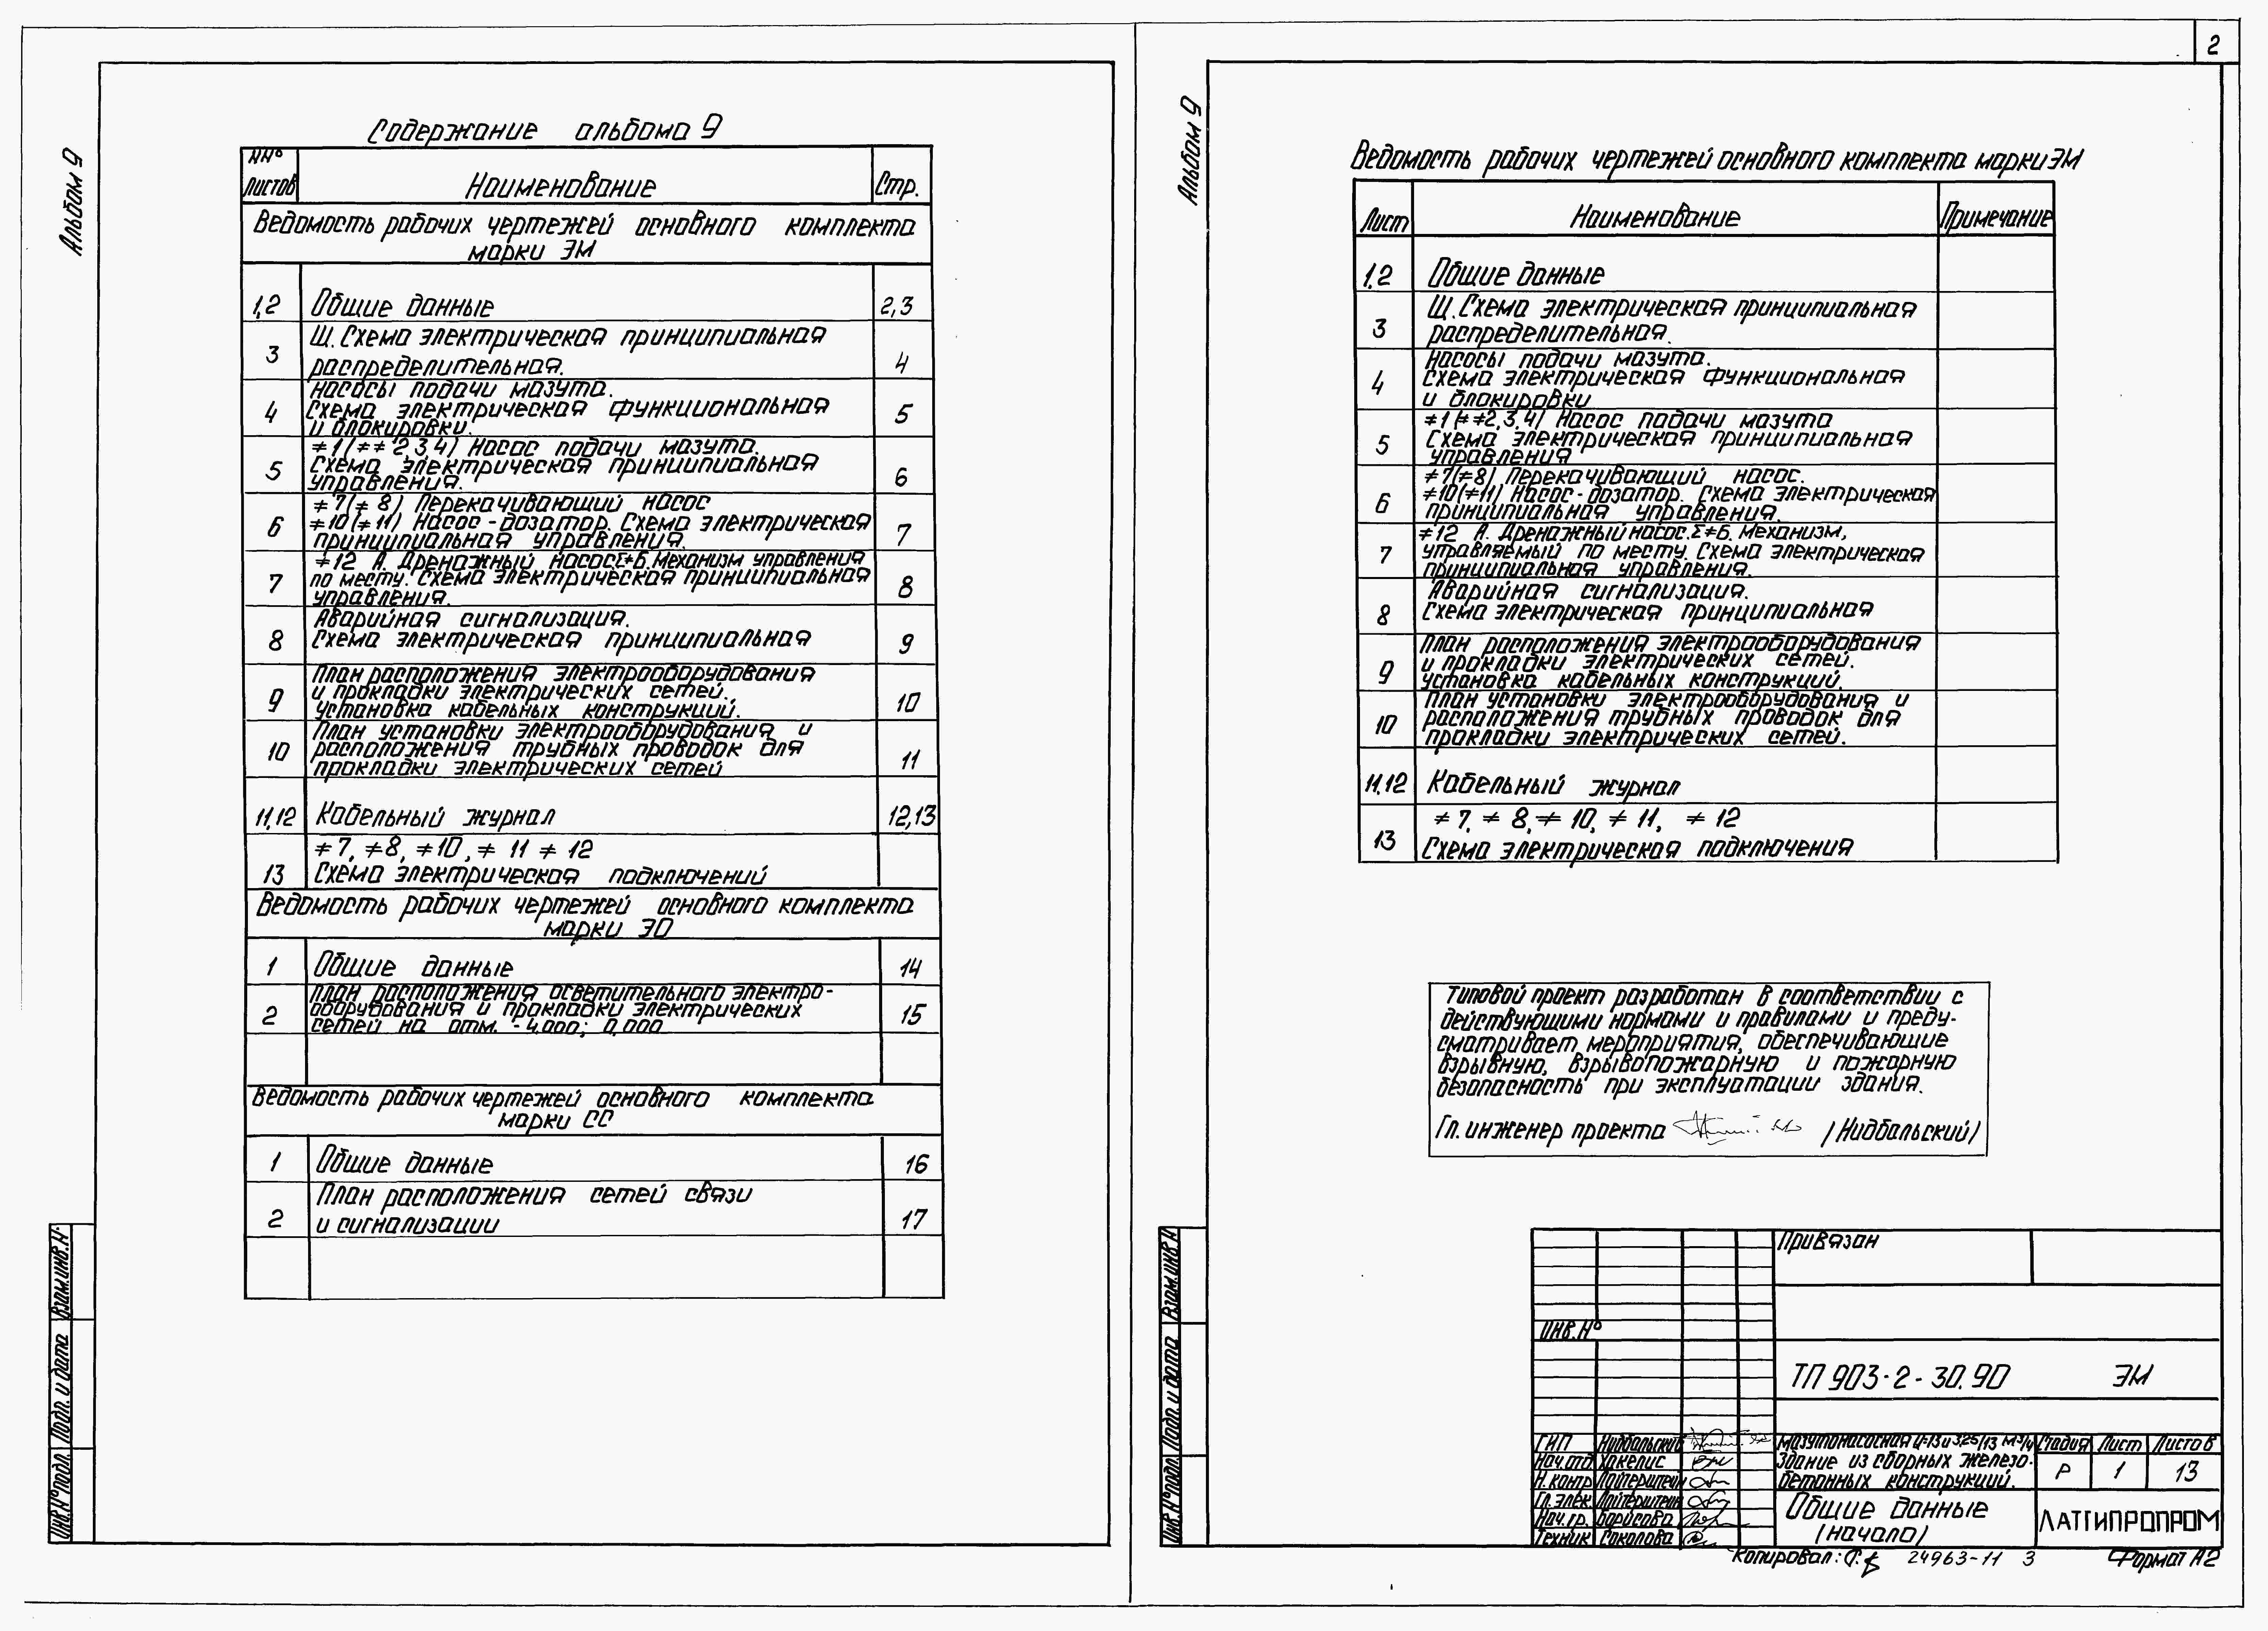 2
Альбом 9
Содержание альбома 9
NNº листов
Наименование
Стр.
Ведомость рабочих чертежей основного комплекта
марки ЭМ
1,2 Общие данные 2,3
Щ. Схема электрическая принципиальная
3 распределительная. 4
Насосы подачи мазута.
4 Схема электрическая функциональная 5
и блокировки.
≠1(≠≠2,3,4) Насос подачи мазута.
5 Схема электрическая принципиальная 6
управления.
≠7(≠8) Перекачивающий насос
6 ≠10(≠11) Насос-дозатор. Схема электрическая 7
принципиальная управления.
≠12 А. Дренажный насос Σ≠Б. Механизм управления
7 по месту. Схема электрическая принципиальная 8
управления.
Аварийная сигнализация.
8 Схема электрическая принципиальная 9
План расположения электрооборудования
9 и прокладки электрических сетей. 10
Установка кабельных конструкций.
План установки электрооборудования и
10 расположения трубных проводок для 11
прокладки электрических сетей
11,12 Кабельный журнал 12,13
≠7, ≠8, ≠10, ≠ 11 ≠ 12
13 Схема электрическая подключений
Ведомость рабочих чертежей основного комплекта
марки ЭО
1 Общие данные 14
План расположения осветительного электро-
2 оборудования и прокладки электрических 15
сетей на отм. -4,000; 0,000
Ведомость рабочих чертежей основного комплекта
марки СС
1 Общие данные 16
План расположения сетей связи
2 и сигнализации 17
Взам.инв.Nº
Подп. и дата
Инв.Nºподл.
Альбом 9
Ведомость рабочих чертежей основного комплекта марки ЭМ
Лист Наименование Примечание
1,2 Общие данные
Щ. Схема электрическая принципиальная
3 распределительная.
Насосы подачи мазута.
4 Схема электрическая функциональная
и блокировки
≠1(≠≠2,3,4) Насос подачи мазута
5 Схема электрическая принципиальная
управления
≠7(≠8) Перекачивающий насос.
6 ≠10(≠11) Насос-дозатор. Схема электрическая
принципиальная управления.
≠12 А. Дренажный насос. Σ≠Б. Механизм,
7 управляемый по месту. Схема электрическая
принципиальная управления.
Аварийная сигнализация.
8 Схема электрическая принципиальная
План расположения электрооборудования
9 и прокладки электрических сетей.
Установка кабельных конструкций.
План установки электрооборудования и
10 расположения трубных проводок для
прокладки электрических сетей.
11,12 Кабельный журнал
≠ 7, ≠ 8, ≠ 10, ≠ 11, ≠ 12
13 Схема электрическая подключения
Типовой проект разработан в соответствии с
действующими нормами и правилами и преду-
сматривает мероприятия, обеспечивающие
взрывную, взрывопожарную и пожарную
безопасность при эксплуатации здания.
Гл. инженер проекта /Нидбальский/
Взам.инв.N
Подп. и дата
Инв.Nºподл.
Привязан
Инв.Nº
ТП 903-2-30.90 ЭМ
ГИП Нидбальский
Нач.отд. Хакелис
Н.контр. Лойтерштейн
Гл.элек. Лойтерштейн
Нач.гр. Борисова
Техник Соколова
Мазутонасосная Q=13 и 3,25/13 м³/ч
Здание из сборных железо-
бетонных конструкций.
Стадия Лист Листов
Р 1 13
Общие данные
(начало)
ЛАТГИПРОПРОМ
Копировал: 24963-11 3 Формат А2